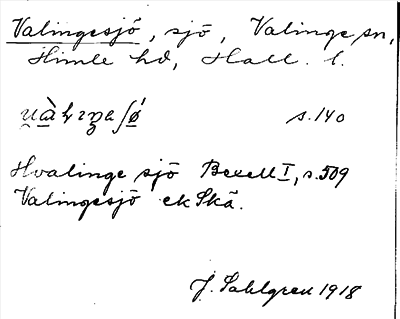 Valingesjö, sjö, Valinge sn,
Himle hd, Hall. l.
s. 140
Hvalinge sjö Bexell I, s. 509
Valingesjö ek Skå.
J. Sahlgren 1918